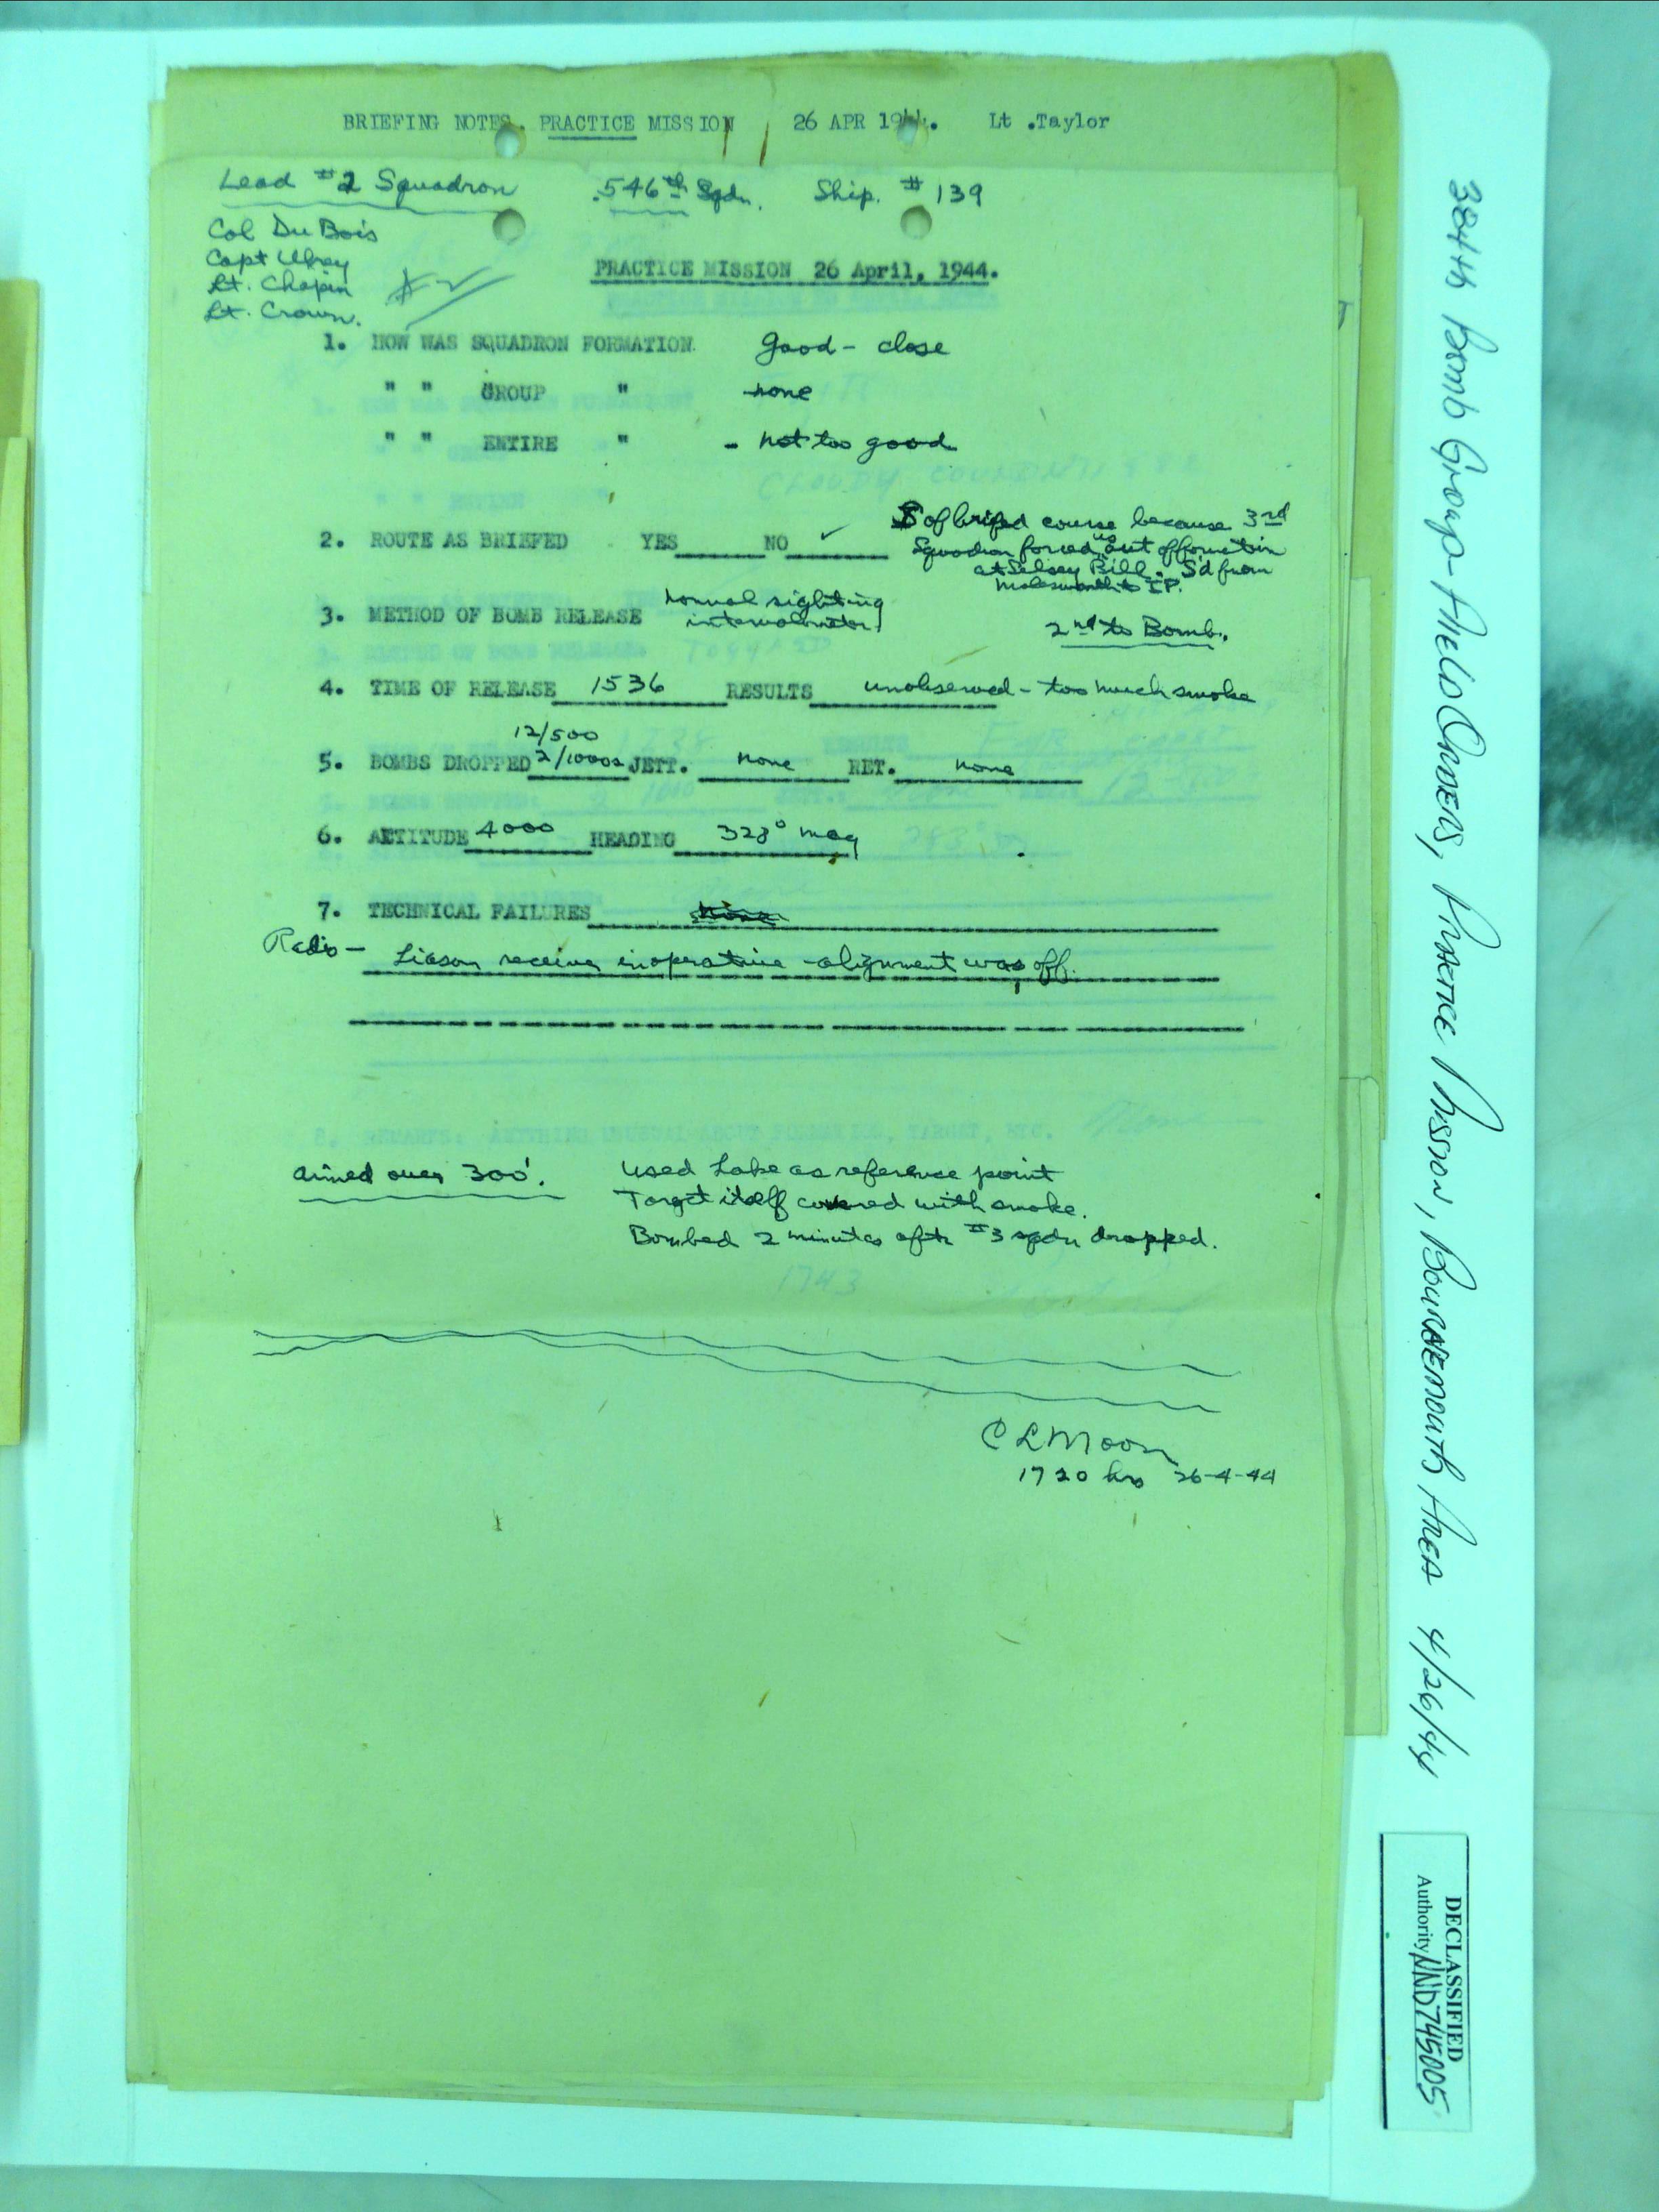 BRIEFING NOTES. PRACTICE MISSION 26 APR 1944. Lt .Taylor
Lead #2 Squadron 546th Sqdn. Ship. # 139
Col Du Bois
Capt Ulrey
Lt. Chapin
Lt. Crown.
#2
PRACTICE MISSION 26 April, 1944.
1. HOW WAS SQUADRON FORMATION Good - close
" " GROUP " none
" " ENTIRE " - not too good
S of brifed course because 3rd
Squadron forced us out of formation
at Selsey Bill. S'd from
Molesworth to I.P.
2. ROUTE AS BRIEFED YES NO ✓
3. METHOD OF BOMB RELEASE normal sighting
intervalometer
2nd to Bomb.
4. TIME OF RELEASE 1536 RESULTS unobserved - too much smoke
12/500
5. BOMBS DROPPED 2/1000s JETT. none RET. none
6. AETITUDE 4000 HEADING 328° mag
7. TECHNICAL FAILURES None
Radio - Liason receiver inoperative - alignment was off.
aimed over 300'. Used Lake as reference point
Target itself covered with smoke.
Bombed 2 minutes aftr #3 sqdn dropped.
C L Moon
1720 hrs 26-4-44
384th Bomb Group Field Orders, Practice Mission, Bournemouth Area 4/26/44
DECLASSIFIED
Authority NND745005